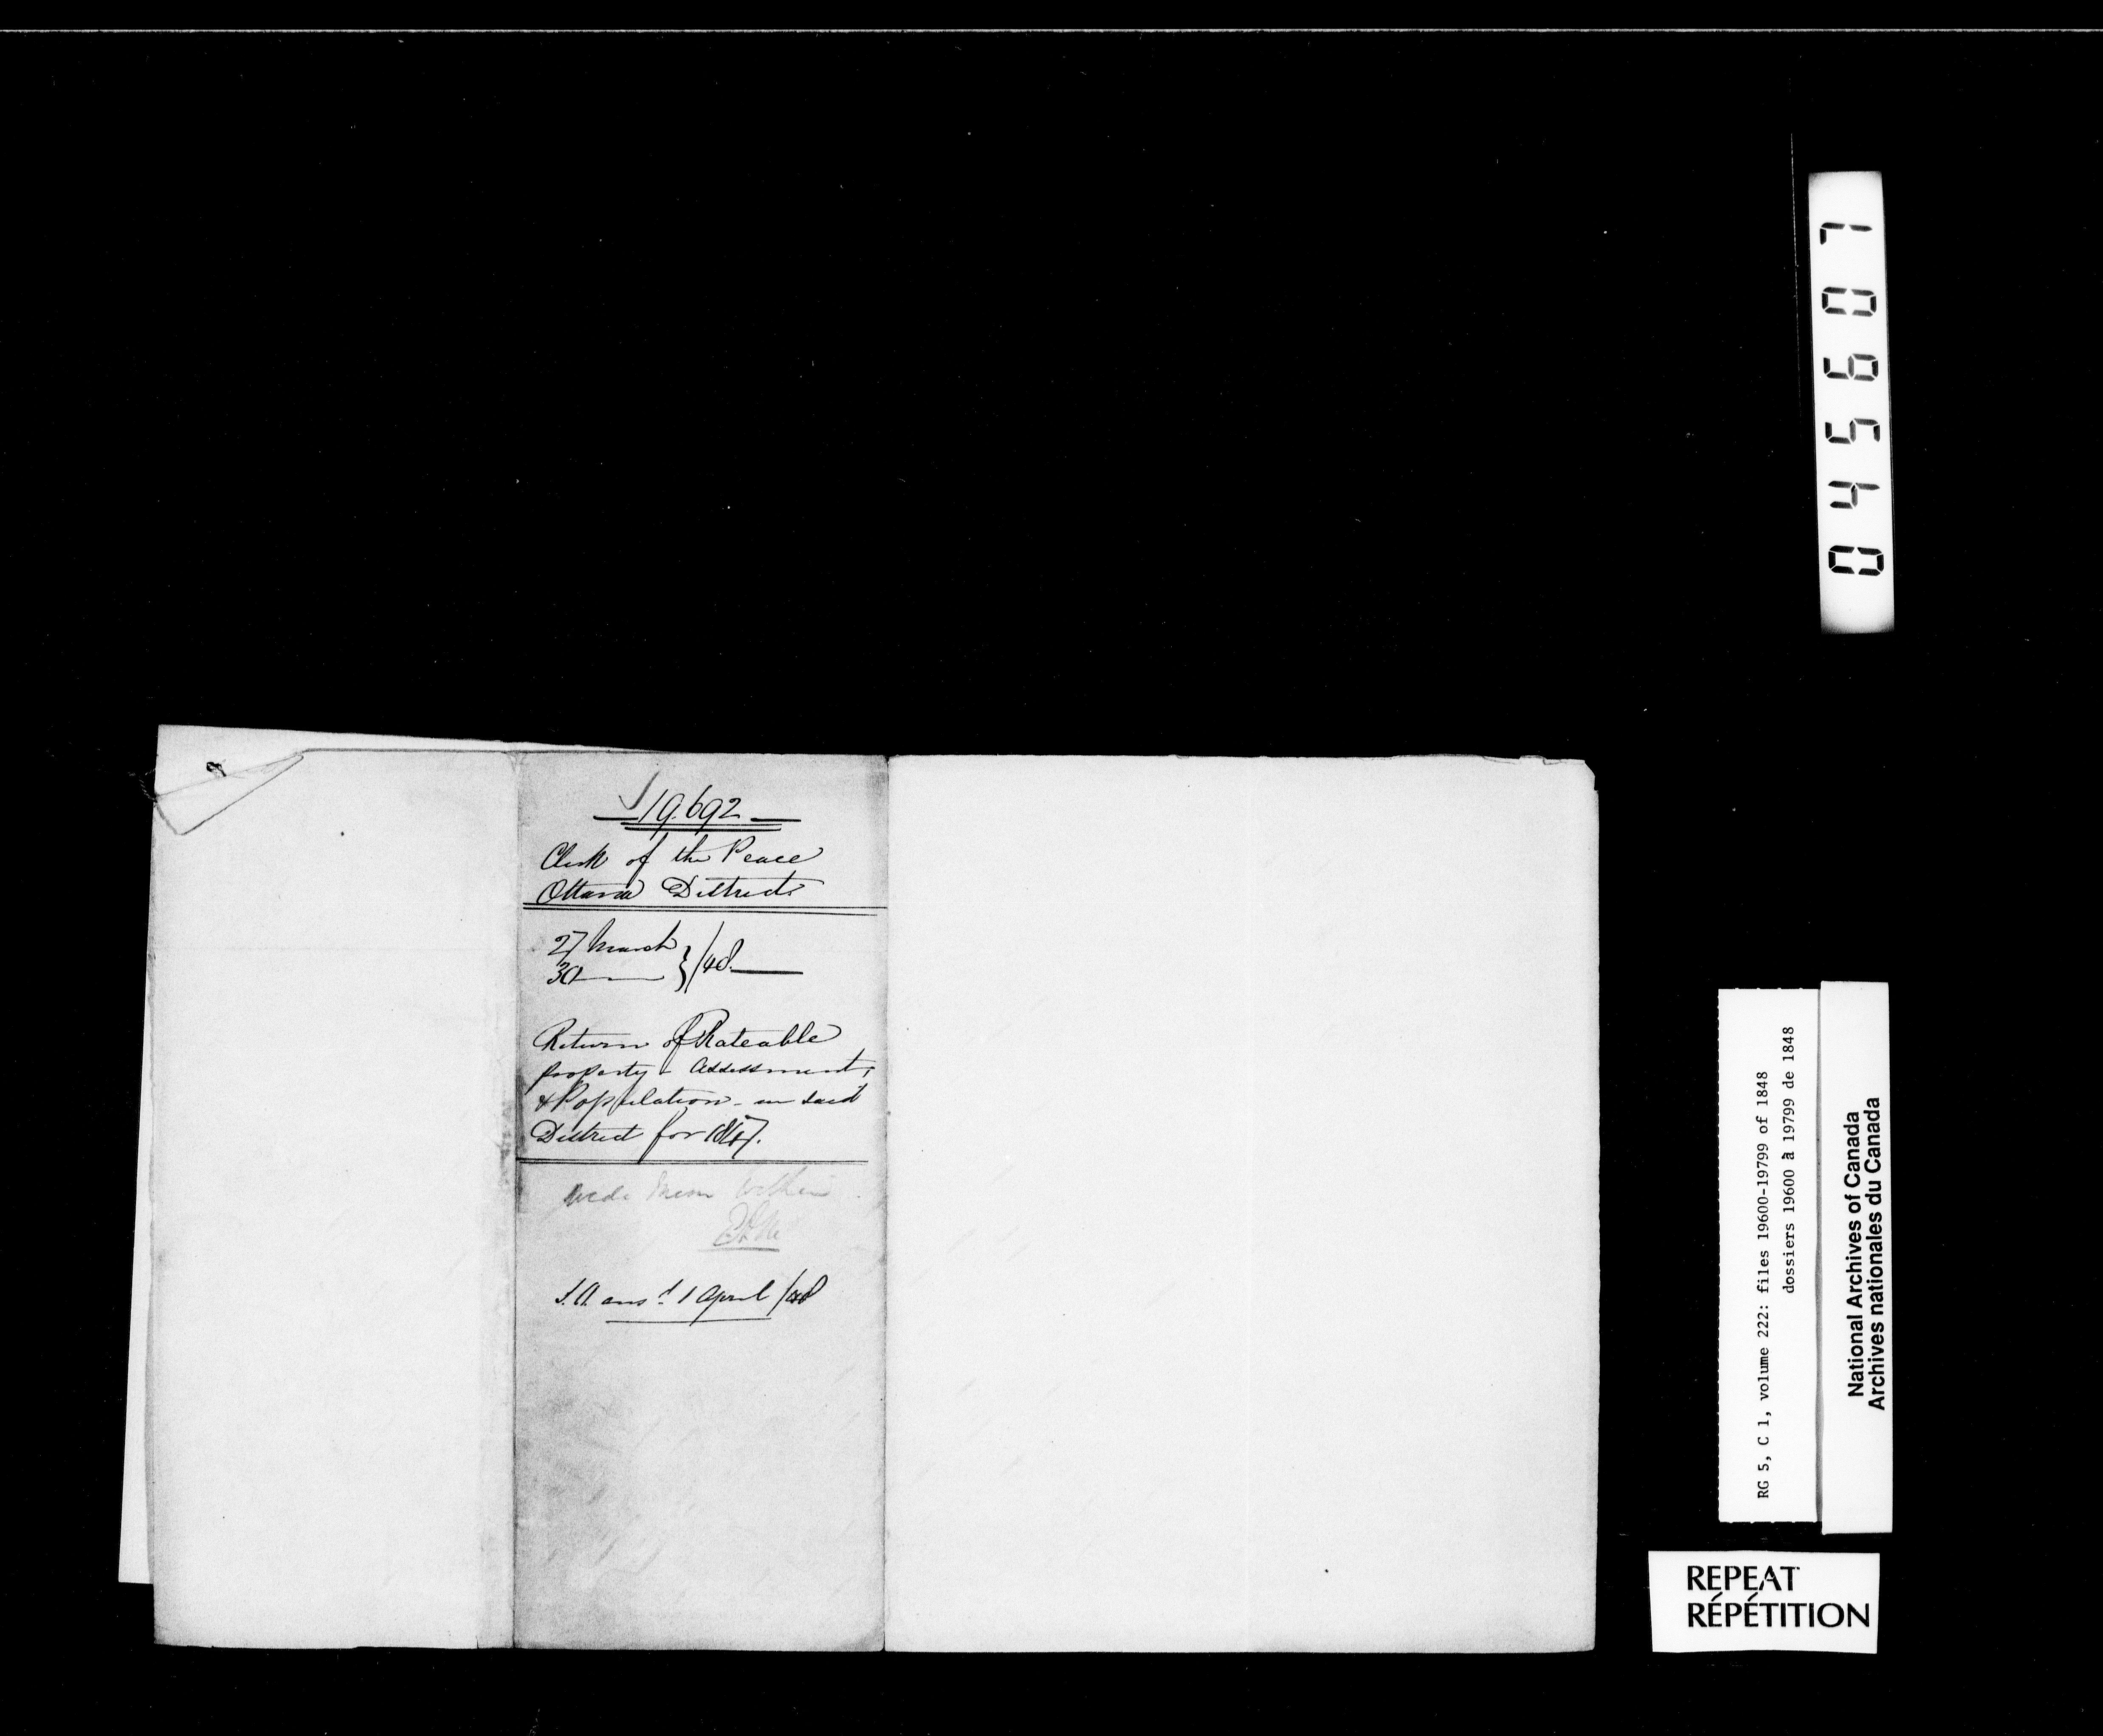 19.692
Clerk of the Peace
Ottawa District
27 March
30 — } /48.
Return of Rateable
property - Assessment,
& Population - in said
District for 1847.
within
ansd 1 April /48
045607
RG 5, C 1, volume 222: files 19600-19799 of 1848
dossiers 19600 à 19799 de 1848
National Archives of Canada
Archives nationales du Canada
REPEAT
RÉPÉTITION